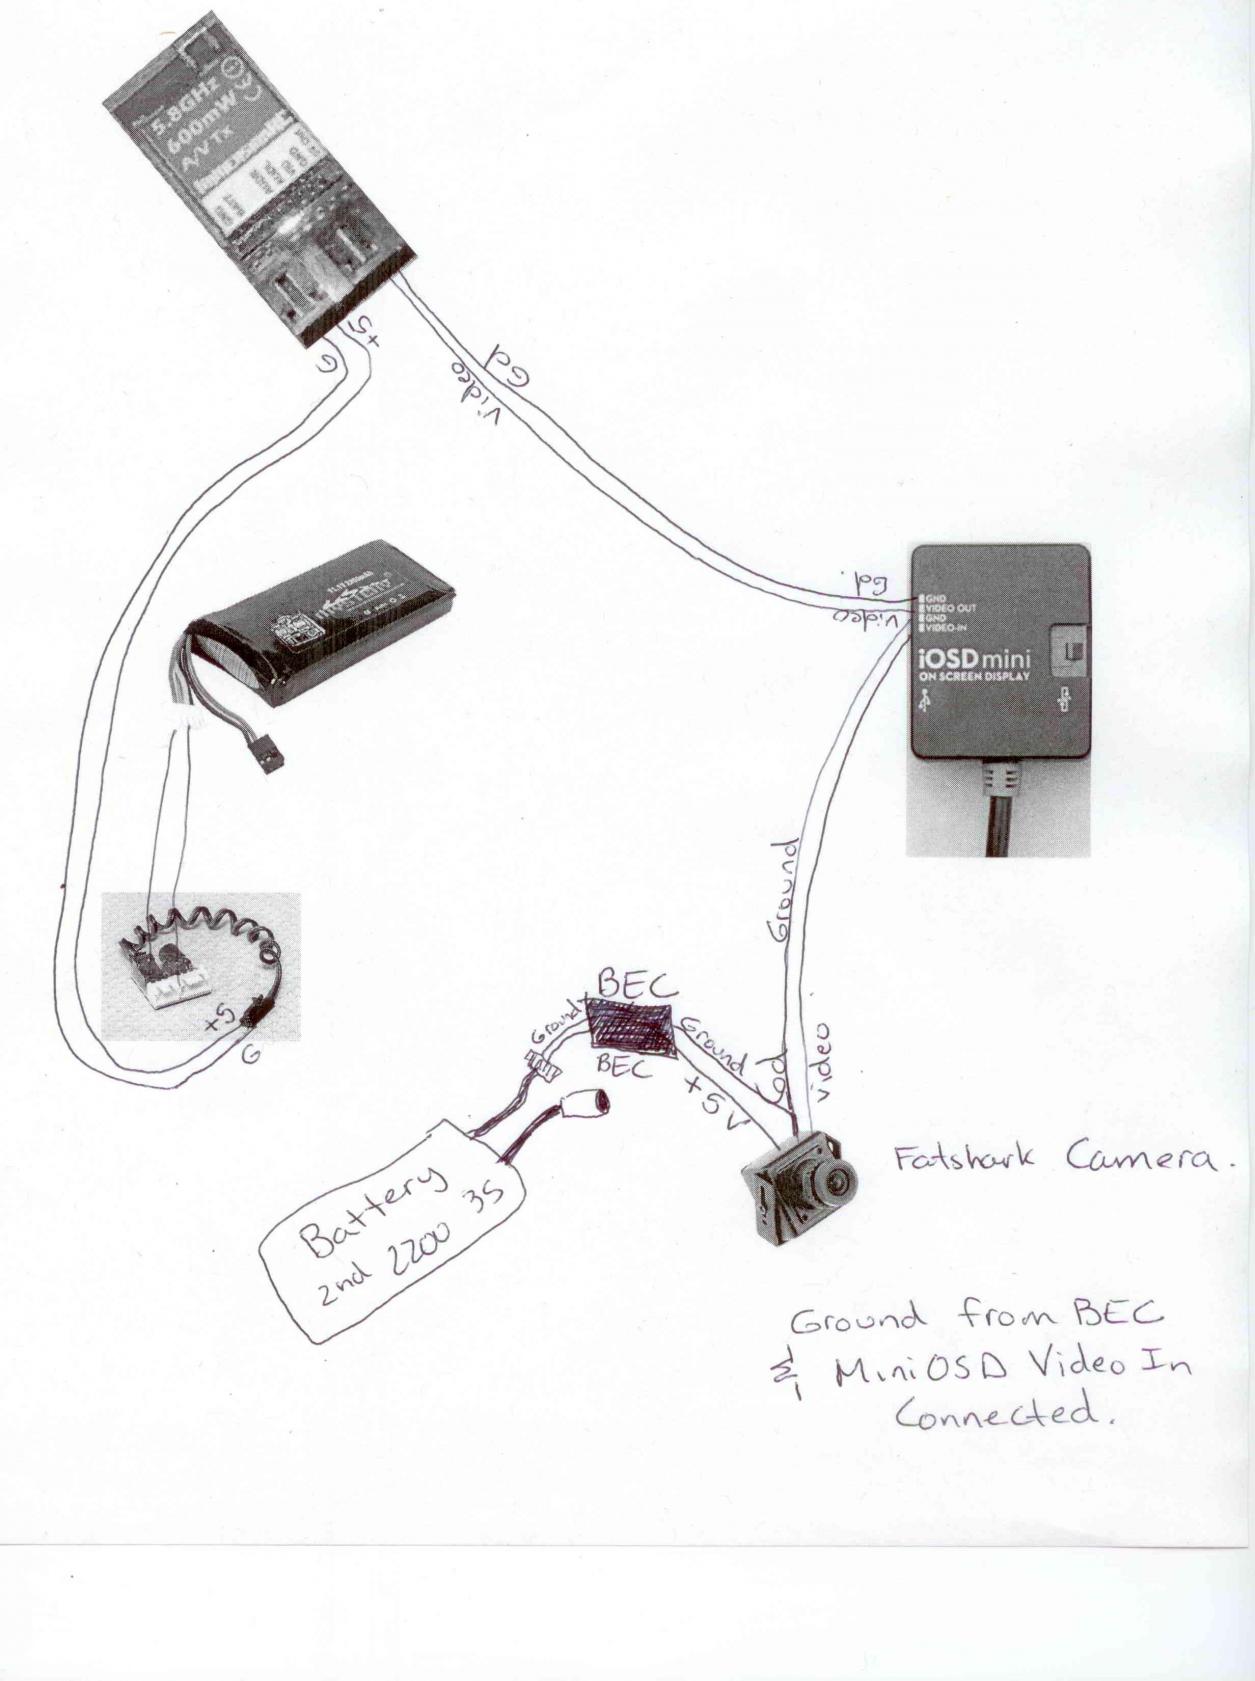 5.8GHz
600mW
A/V Tx
GND
+5
G
Gd
Video
Gd.
Video
GND
VIDEO OUT
GND
VIDEO-IN
iOSD mini
ON SCREEN DISPLAY
Ground
BEC
Ground
+
BEC
Ground
+5V
Gd
video
+5
G
Battery
2nd 2200 3S
Fatshark Camera.
Ground from BEC
& MiniOSD Video In
Connected.